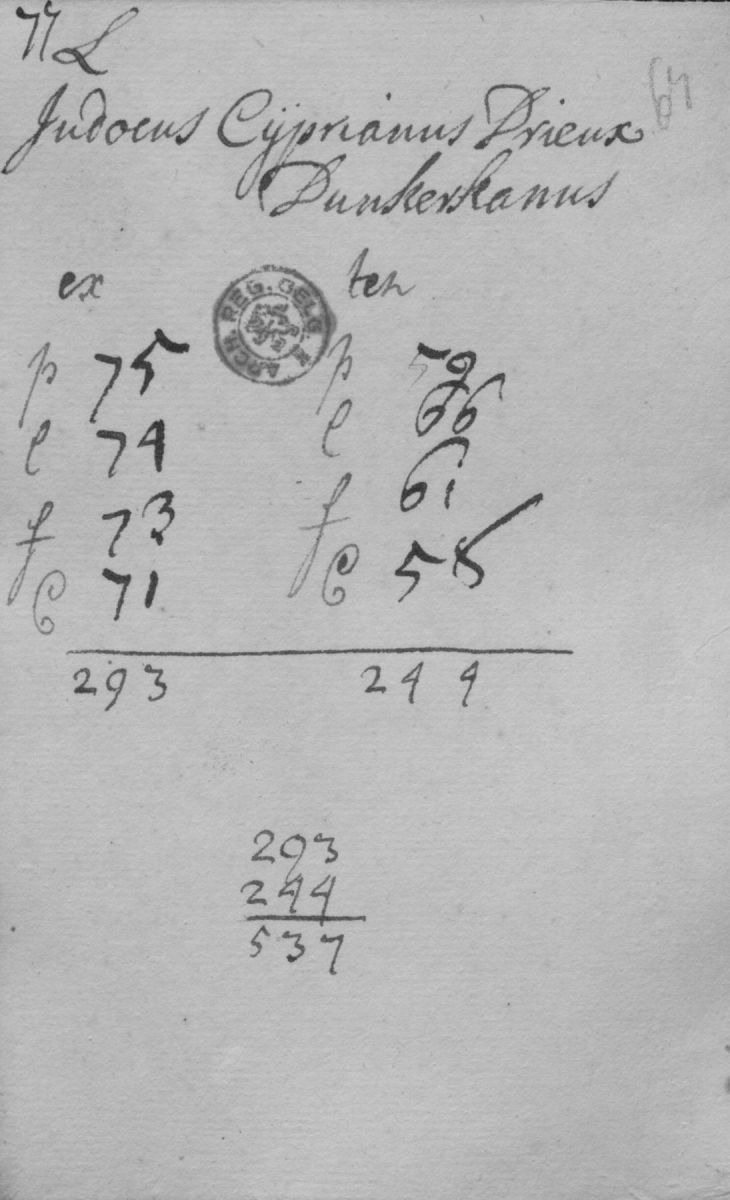 77 L
Judocus Cÿprianus Drieux
Dunkerkanus
ex ten
ARCH. REG. BELG.
p 75 p 59
l 74 l 66
f 73 f 61
C 71 C 58
293 244
293
244
537